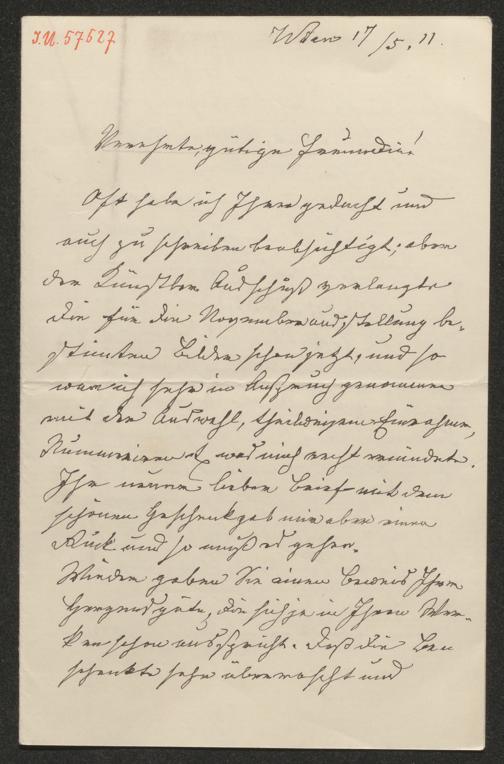 J.N. 57527
Wien 17/5. 11.
Verehrte, gütige Freundin!
Oft habe ich Ihrer gedacht und
auch zu schreiben beabsichtigt; aber
der Künstler Ausschuß verlangte
die für die Novemberausstellung be-
stimten Bilder schon jetzt, und so
war ich sehr in Anspruch genommen
mit der Auswahl, theilweisem Einrahmen,
Nummeriren etz was mich recht ermüdete.
Ihr neuer lieber Brief mit dem
schönen Geschenk gab mir aber einen
Ruck und so muß es gehen.
Wieder gaben Sie einen Beweis Ihrer
Herzensgüte, die sich ja in Ihren Wer-
ken schon ausspricht. Daß die Be-
schenkte sehr überrascht und